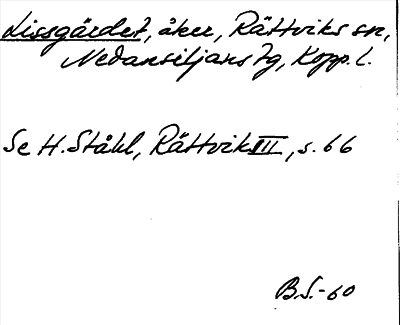 Lissgärdet, åker, Rättviks sn,
Nedansiljans tg, Kopp. l.
Se H. Ståhl, Rättvik III, s. 66
B.S.-60